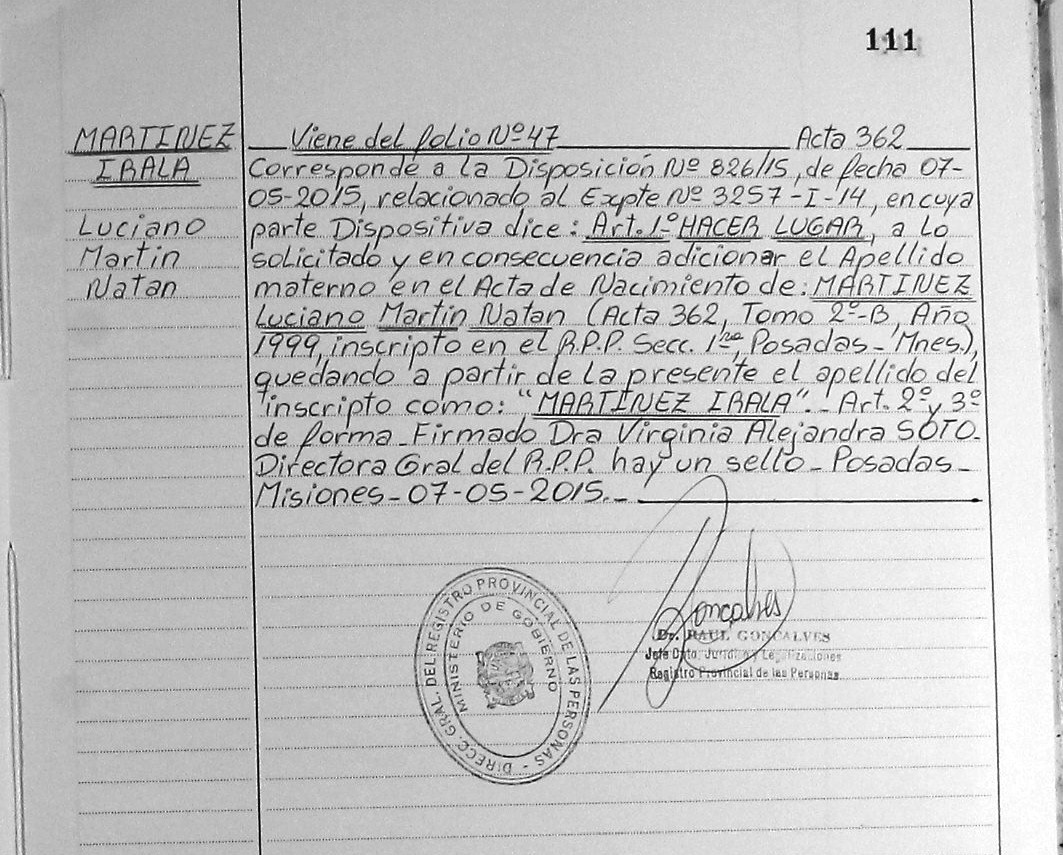 111
MARTINEZ
IRALA
Luciano
Martin
Natan
Viene del folio Nº 47 Acta 362
Corresponde a la Disposición Nº 826/15, de fecha 07-
05-2015, relacionado al Expte Nº 3257-I-14, en cuya
parte Dispositiva dice: Art. 1º HACER LUGAR, a lo
solicitado y en consecuencia adicionar el Apellido
materno en el Acta de Nacimiento de: MARTINEZ
Luciano Martin Natan (Acta 362, Tomo 2º-B, Año
1999, inscripto en el R.P.P. Secc. 1ra, Posadas - Mnes.),
quedando a partir de la presente el apellido del
inscripto como: "MARTINEZ IRALA". Art. 2º y 3º
de forma - Firmado Dra Virginia Alejandra SOTO -
Directora Gral del R.P.P. hay un sello - Posadas -
Misiones - 07-05-2015. -
DIRECC. GRAL. DEL REGISTRO PROVINCIAL DE LAS PERSONAS -
MINISTERIO DE GOBIERNO
Goncalves
Dr. RAUL GONCALVES
Jefe Dpto. Jurídico y Legalizaciones
Registro Provincial de las Personas